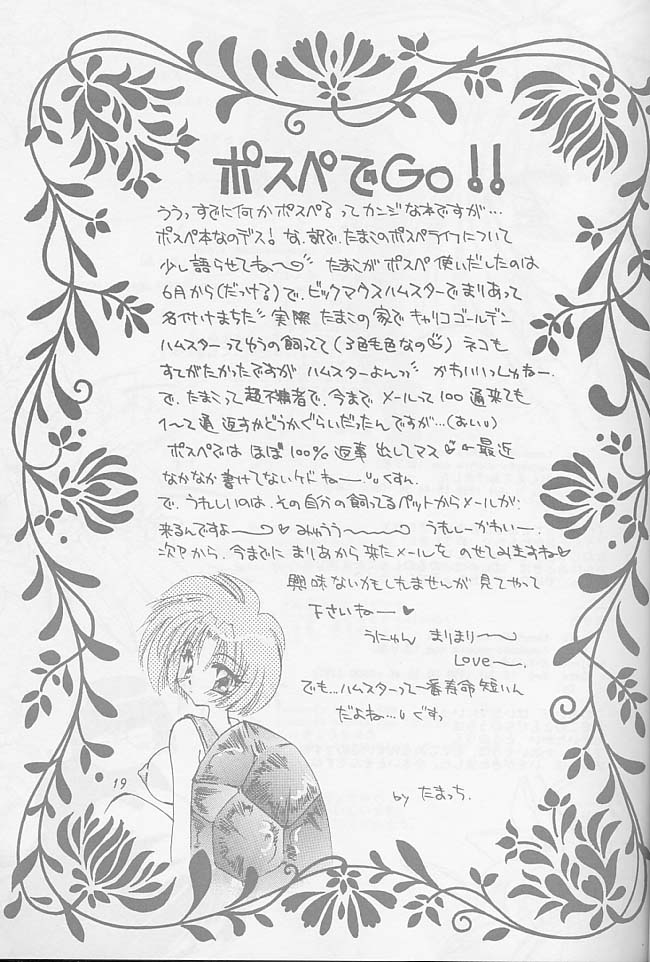 ポスペでGo!!
ううっすでに何かポスペるってカンジな本ですが…
ポスペ本なのデス! な、訳で、たまこのポスペライフについて
少し語らせてね〜 たまこがポスペ使いだしたのは
6月から(だっける)で、ビックマウスハムスターでまりあって
名付けまちた 実際たまこの家でキャリコゴールデン
ハムスターってゆうの飼ってて(3色毛色なの) ネコも
すてがたかったですが ハムスターよんっ かわいいっしょねー。
で、たまこって超不精者で、今までメールって100通来ても
1〜て通返すかどうかぐらいだったんですが…(おい)
ポスペではほぼ100%返事出してマス ←最近
なかなか書けてないケドねー。くすん。
で、うれしいのは、その自分の飼ってるペットからメールが
来るんですよー みゅうう〜 うれしーかわいー。
次Pから、今までにまりあから来たメールをのせてみますね♡
興味ないかもしれませんが見てやって
下さいねー♥
うにゅん まりまり〜
Love〜。
でも…ハムスターって一番寿命短いん
だよね… ぐすっ
by たまっち.
19